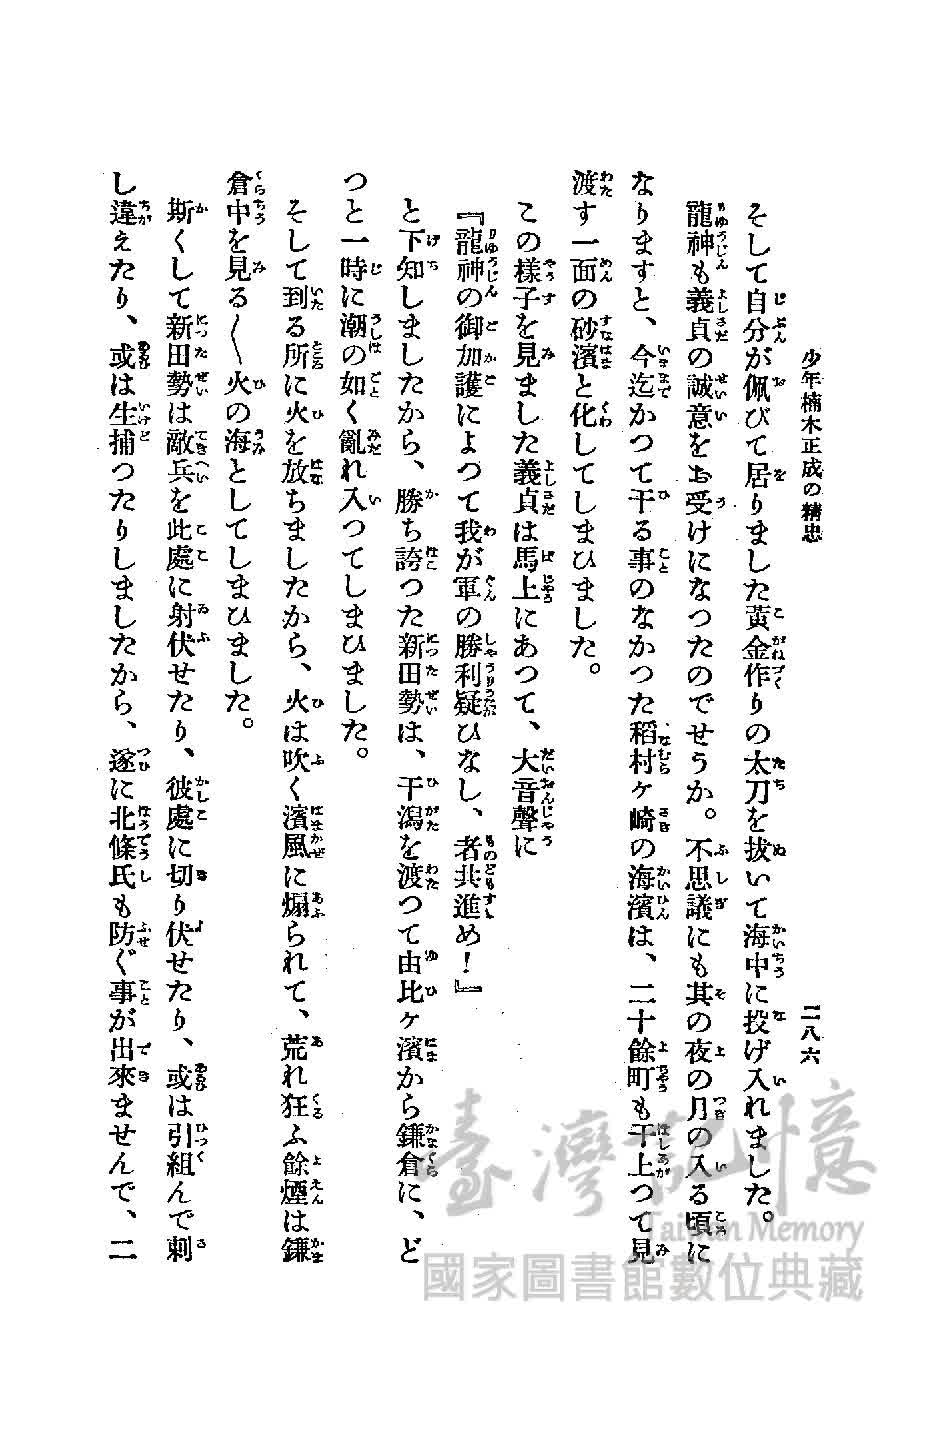 少年楠木正成の精忠
二八六
そして自分が佩びて居りました黄金作りの太刀を拔いて海中に投げ入れました。
龍神も義貞の誠意をお受けになつたのでせうか。不思議にも其の夜の月の入る頃に
なりますと、今迄かつて干る事のなかつた稻村ヶ崎の海濱は、二十餘町も干上つて見
渡す一面の砂濱と化してしまひました。
この樣子を見ました義貞は馬上にあつて、大音聲に
『龍神の御加護によつて我が軍の勝利疑ひなし、者共進め！』
と下知しましたから、勝ち誇つた新田勢は、干潟を渡つて由比ヶ濱から鎌倉に、ど
つと一時に潮の如く亂れ入つてしまひました。
そして到る所に火を放ちましたから、火は吹く濱風に煽られて、荒れ狂ふ餘煙は鎌
倉中を見る〱火の海としてしまひました。
斯くして新田勢は敵兵を此處に射伏せたり、彼處に切り伏せたり、或は引組んで刺
し違えたり、或は生捕つたりしましたから、遂に北條氏も防ぐ事が出來ませんで、二
臺灣記憶
Taiwan Memory
國家圖書館數位典藏